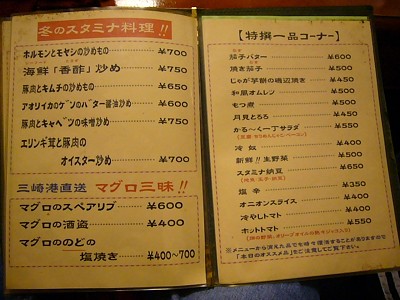 冬のスタミナ料理!!
ホルモンとモヤシの炒めもの ¥700
海鮮「香酢」炒め ¥750
豚肉とキムチの炒めもの ¥650
アオリイカのゲソのバター醤油炒め ¥600
豚肉とキャベツの味噌炒め ¥750
エリンギ茸と豚肉の
オイスター炒め ¥700
三崎港直送 マグロ三昧!!
マグロのスペアリブ ¥600
マグロの酒盗 ¥400
マグロののどの
塩焼き ¥400~700
【特撰一品コーナー】
茄子バター ¥600
焼き茄子 ¥500
じゃが芋餅の磯辺焼き ¥450
和風オムレツ ¥500
もつ煮 ¥500
月見とろろ ¥450
かる~く一丁サラダ ¥550
冷奴 ¥400
新鮮!!生野菜 ¥500
スタミナ納豆 ¥650
塩辛 ¥350
オニオンスライス ¥400
冷やしトマト ¥400
ホットトマト ¥550